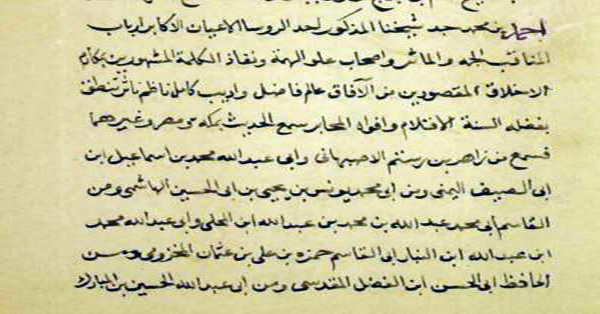 احمد بن محمد جد شيخنا المذكور احد الروسا الاعيان الاكابر ارباب
المناقب الجمه والماثر واصحاب علو الهمة ونفاذ الكلمة المشهورين بمكارم
الاخلاق المقصودين من الآفاق عالم فاضل واديب كامل ناظم ناثر تنطق
بفضله السنة الاقلام وافواه المحابر سمع الحديث بمكه ومصر وغيرهما
فسمع من زاهر بن رستم الاصبهانى وابى عبد الله محمد بن اسماعيل ابن
ابى الصيف اليمنى ومن ابى محمد يونس بن يحيى بن ابى الحسين الهاشمى ومن
القاسم ابى محمد عبد الله بن محمد بن عبد الله ابن المحلى وابى عبد الله محمد
ابن عبد الله ابن البنا وابى القاسم حمزه بن على بن عثمان المخزومى ومن
الحافظ ابى الحسن ابن الفضل المقدسى ومن ابى عبد الله الحسين بن المبارك